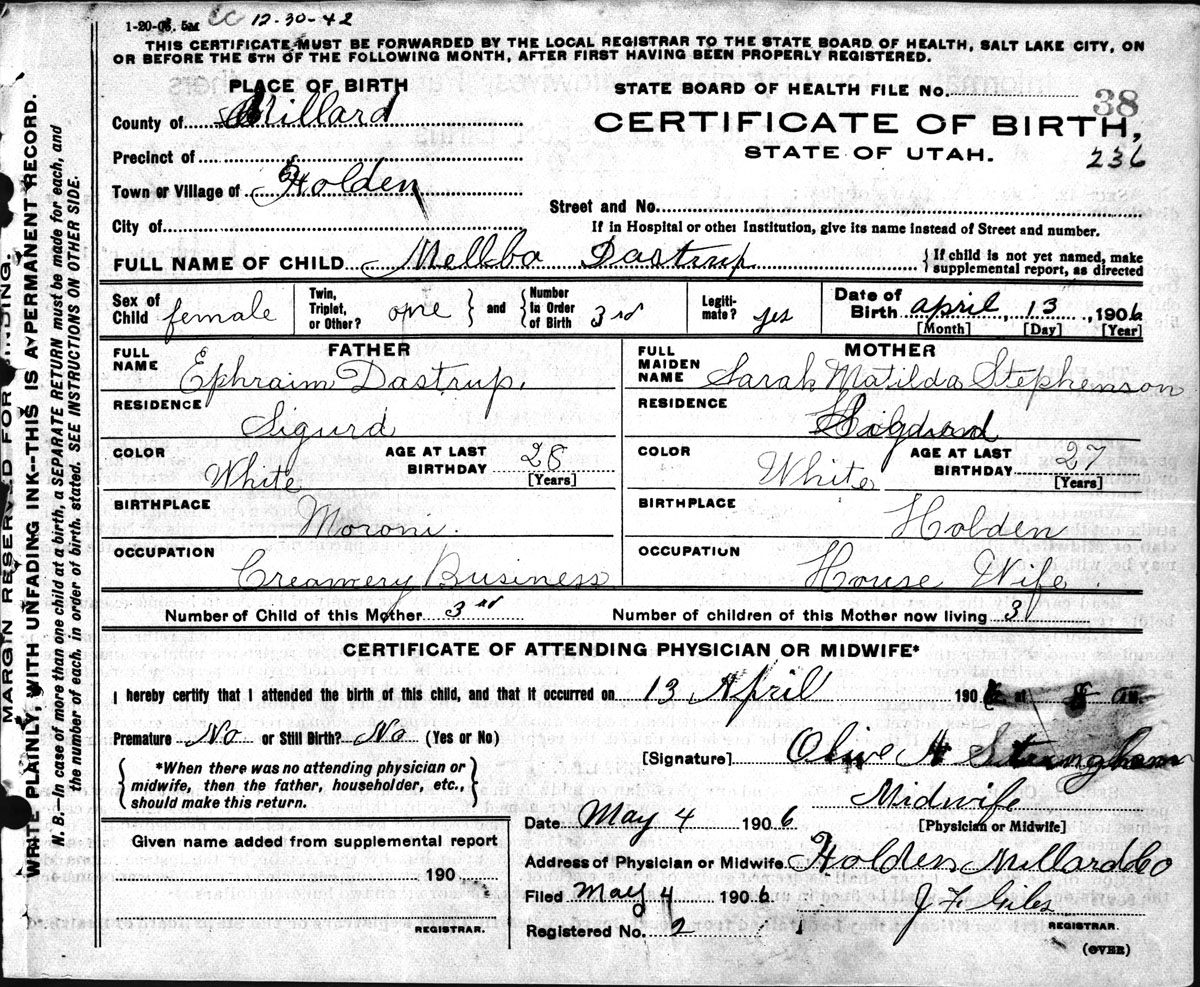 1-20-06. 5M CC 12-30-42
THIS CERTIFICATE MUST BE FORWARDED BY THE LOCAL REGISTRAR TO THE STATE BOARD OF HEALTH, SALT LAKE CITY, ON
OR BEFORE THE 5TH OF THE FOLLOWING MONTH, AFTER FIRST HAVING BEEN PROPERLY REGISTERED.
MARGIN RESERVED FOR BINDING.
WRITE PLAINLY, WITH UNFADING INK--THIS IS A PERMANENT RECORD.
N. B.--In case of more than one child at a birth, a SEPARATE RETURN must be made for each, and
the number of each, in order of birth, stated. SEE INSTRUCTIONS ON OTHER SIDE.
PLACE OF BIRTH
County of Millard
Precinct of
Town or Village of Holden
City of
STATE BOARD OF HEALTH FILE No. 38
CERTIFICATE OF BIRTH,
STATE OF UTAH. 236
Street and No.
If in Hospital or other Institution, give its name instead of Street and number.
FULL NAME OF CHILD Mellba Dastrup { If child is not yet named, make
supplemental report, as directed
Sex of Child female
Twin, Triplet, or Other? one } and { Number in Order of Birth 3rd
Legiti-mate? yes
Date of Birth april 13, 1906
[Month] [Day] [Year]
FATHER
FULL NAME Ephraim Dastrup.
RESIDENCE Sigurd
COLOR White AGE AT LAST BIRTHDAY 28 [Years]
BIRTHPLACE Moroni.
OCCUPATION Creamery Business
MOTHER
FULL MAIDEN NAME Sarah Matilda Stephenson
RESIDENCE
COLOR White AGE AT LAST BIRTHDAY 27 [Years]
BIRTHPLACE Holden
OCCUPATION House Wife.
Number of Child of this Mother 3rd Number of children of this Mother now living 3
CERTIFICATE OF ATTENDING PHYSICIAN OR MIDWIFE*
I hereby certify that I attended the birth of this child, and that it occurred on 13 April 190 at 8 a m.
Premature No or Still Birth? No (Yes or No)
{ *When there was no attending physician or
midwife, then the father, householder, etc.,
should make this return. }
[Signature] Olive H
Midwife
[Physician or Midwife]
Date May 4 1906
Address of Physician or Midwife Holden Millard Co
Filed May 4 1906 J F Giles
REGISTRAR.
Registered No. 2
Given name added from supplemental report
190
REGISTRAR.
(OVER)